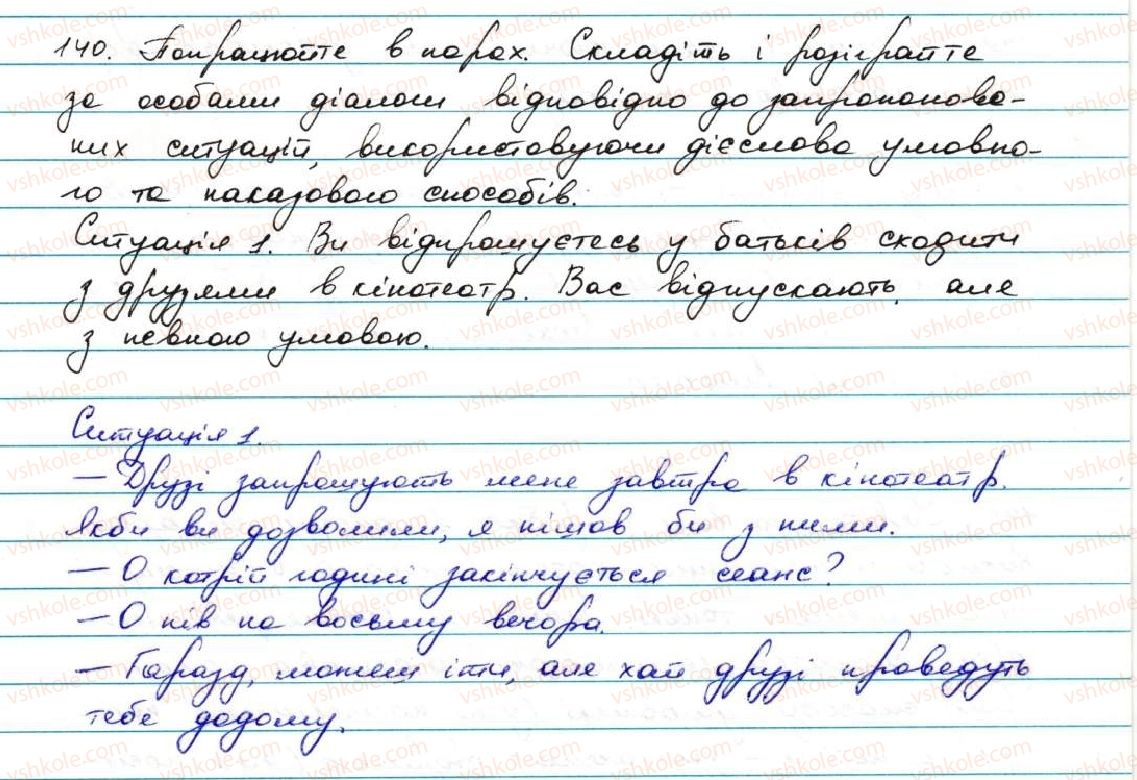 140. Попрацюйте в парах. Складіть і розіграйте
за особами діалоги відповідно до запропонова-
них ситуацій, використовуючи дієслова умовно-
го та наказового способів.
Ситуація 1. Ви відпрошуєтесь у батьків сходити
з друзями в кінотеатр. Вас відпускають, але
з певною умовою.
Ситуація 1.
— Друзі запрошують мене завтра в кінотеатр.
Якби ви дозволили, я пішов би з ними.
— О котрій годині закінчується сеанс?
— О пів на восьму вечора.
— Гаразд, можеш іти, але хай друзі проведуть
тебе додому.